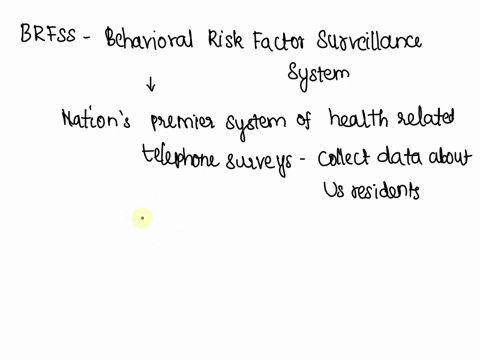 BRFSS - Behavioral Risk Factor Surveillance
System
Nation's premier system of health related
telephone surveys - collect data about
Us residents